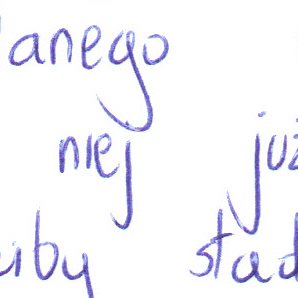 anego
niej już
iby stad